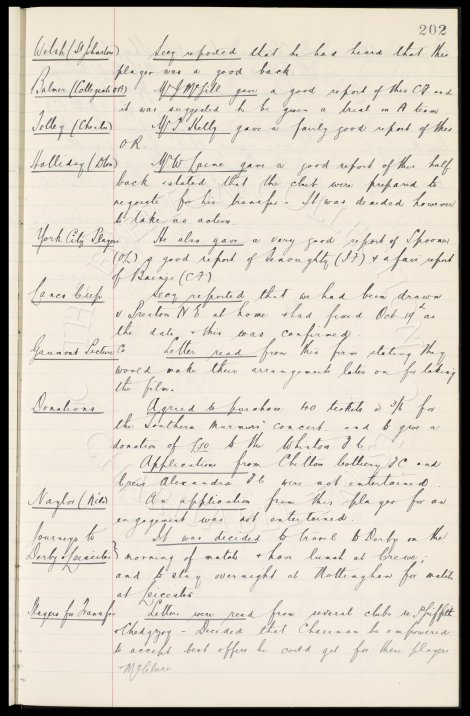 202
Welsh (St Johnston) Secy reported that he has heard that this
player was a good back.
Balmer (Collegiate OB) Mr J McGill gave a good report of this C.F. and
it was suggested he be given a trial in A team
Tolley (Chester) Mr J Kelly gave a fairly good report of this
O.R.
Halliday (Dton) Mr W Crine gave a good report of this half
back & stated that the club were prepared to
negotiate for his transfer - It was decided however
to take no action
York City Players He also gave a very good report of Spooner
(O/L) a good report of & a fair report
of Baines (C.F.)
Lancs Cup Secy reported that we had been drawn
v Preston N.E. at home & had fixed Oct 19th as
the date, & this was confirmed.
Gaumont Picture Co Letter read from this firm stating they
would make their arrangements later on for taking
the film.
Donations Agreed to purchase 40 tickets @ 3/6 for
the Southern Mariners' concert and to give a
donation of to the Whiston F.C.
Applications from Chilton Colliery F.C. and
Crewe Alexandra F.C. were not entertained.
Naylor An application from this player for an
engagement was not entertained.
Journeys to It was decided to travel to Derby on the
Derby & Leicester } morning of match & have lunch at Crewe;
and to stay overnight at Nottingham for match
at Leicester
Players for Transfer Letters were read from several clubs re Griffiths
& Chedgzoy - Decided that Chairman be empowered
to accept best offers he could get for these players
& McClure